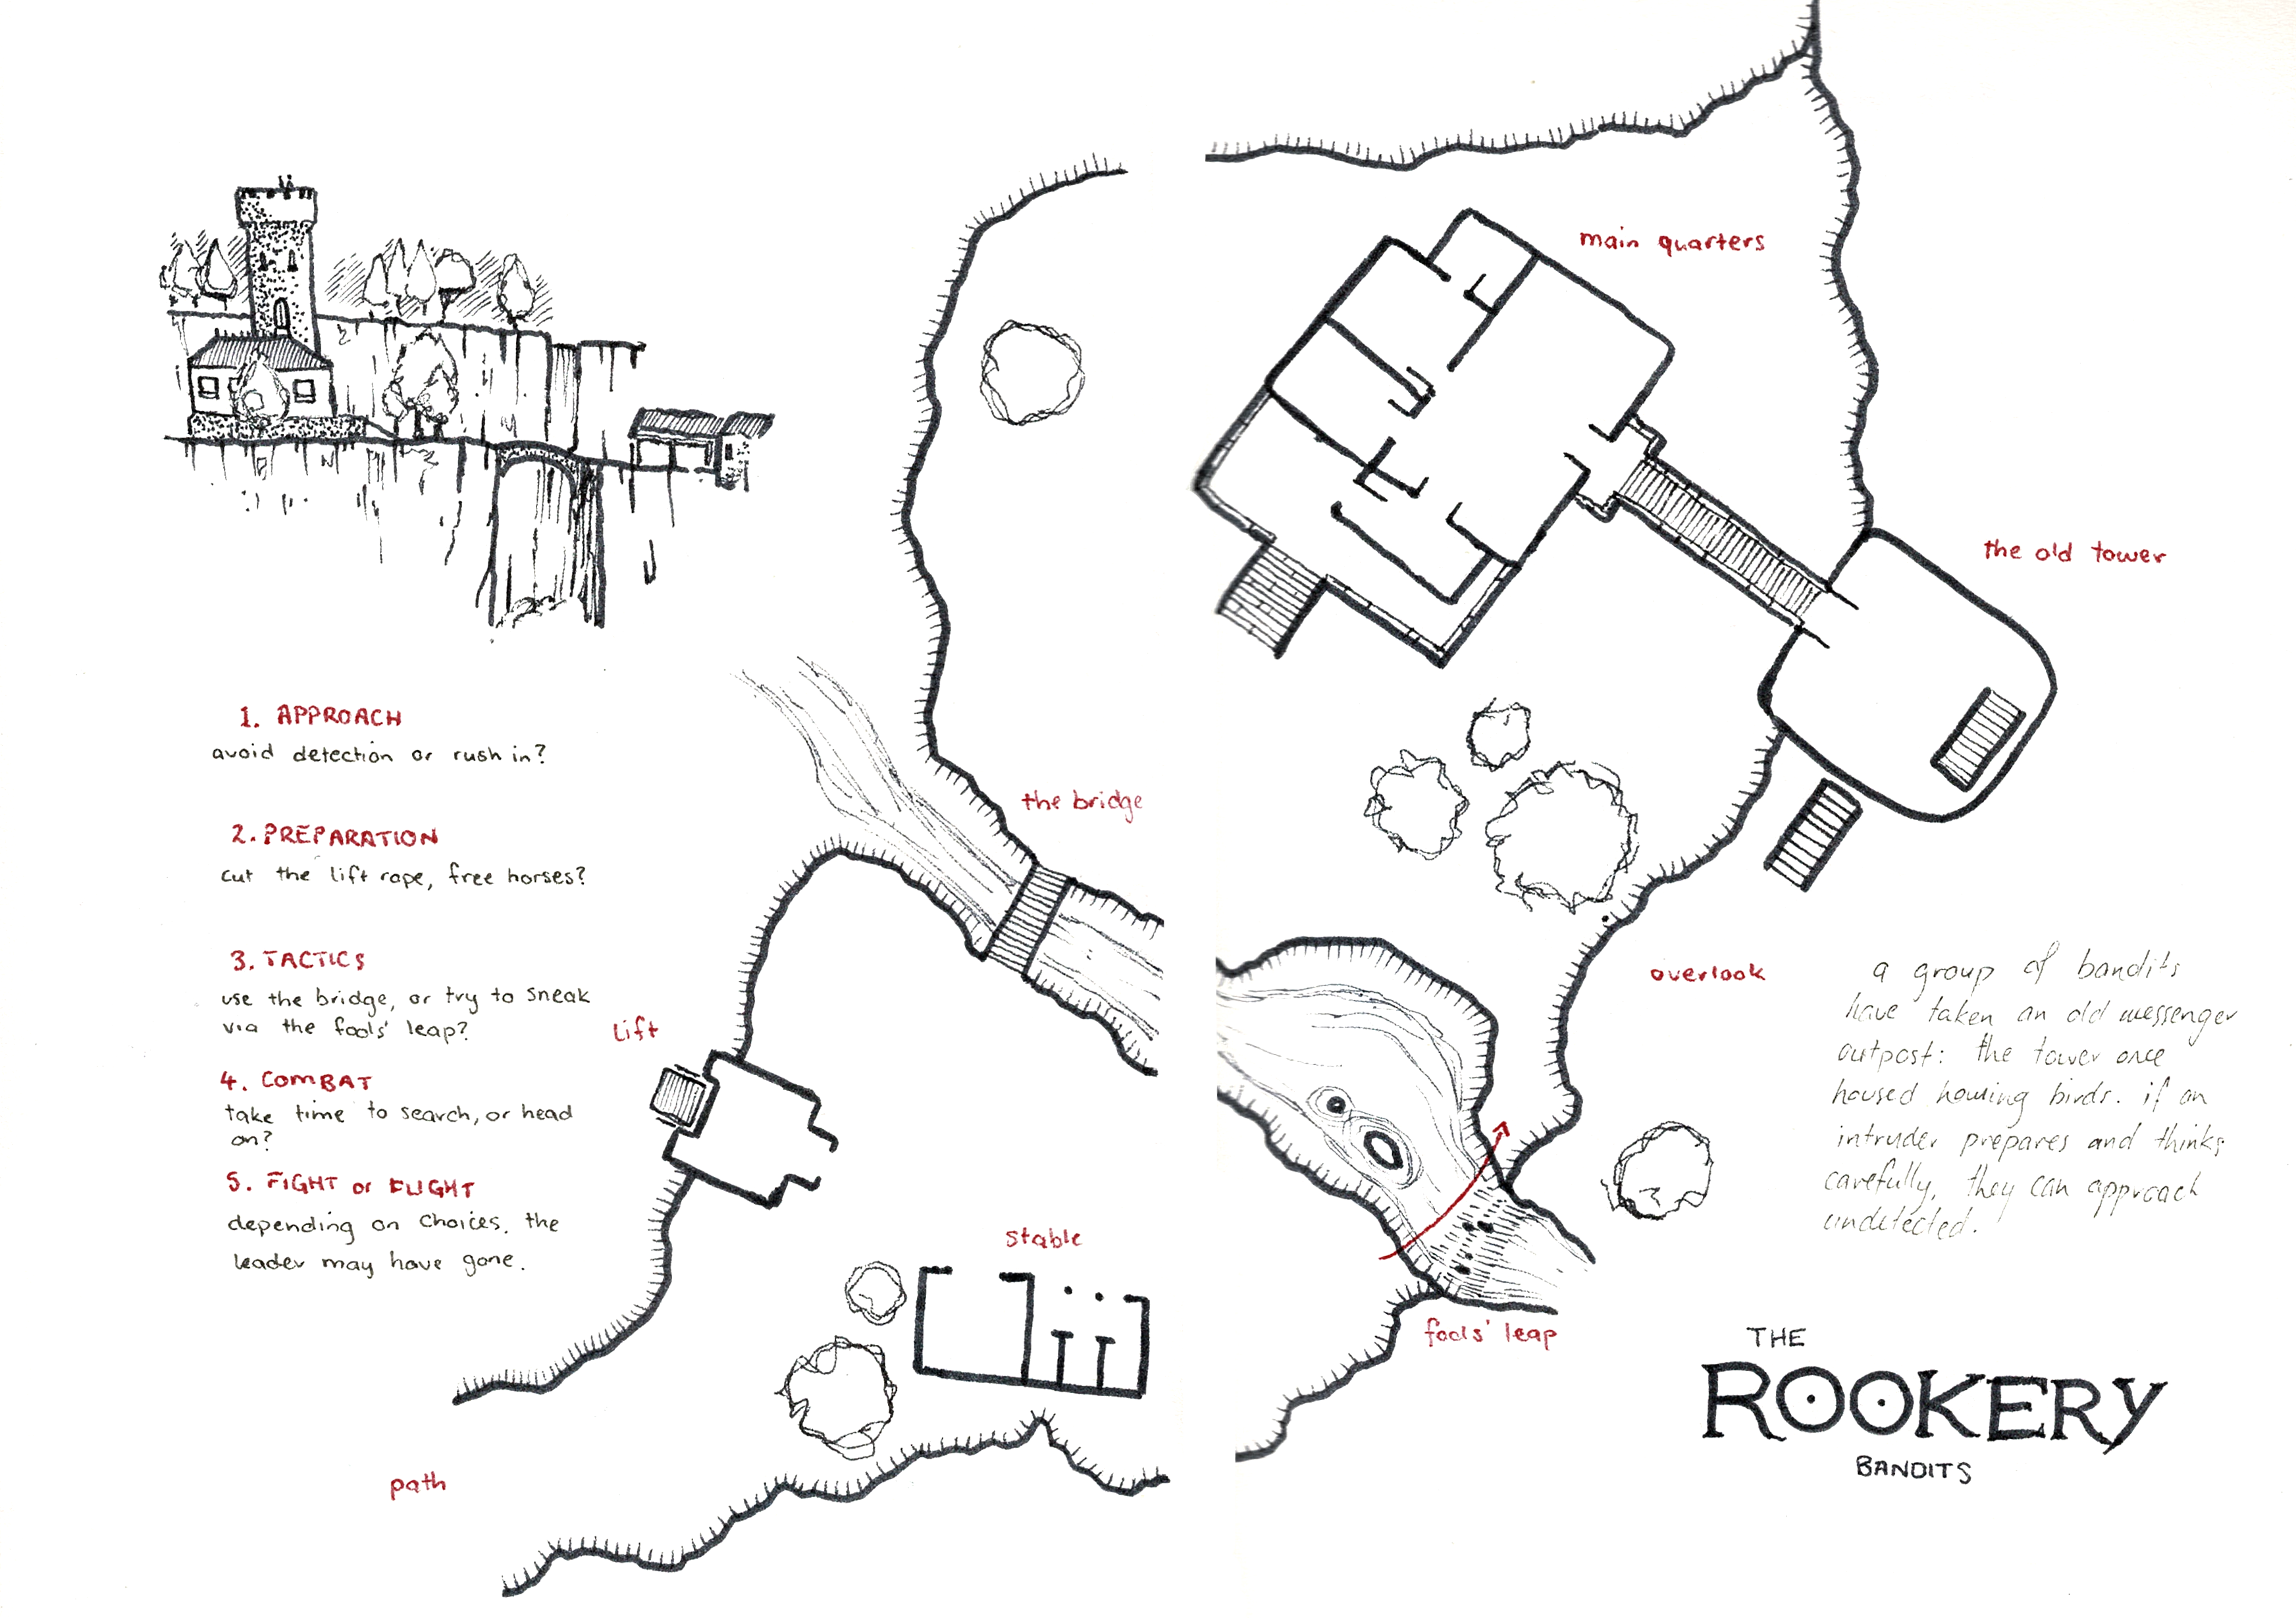 main quarters
the old tower
1. APPROACH
avoid detection or rush in?
the bridge
2. PREPARATION
cut the lift rope, free horses?
3. TACTICS
use the bridge, or try to sneak
via the fools' leap?
lift
4. COMBAT
take time to search, or head
on?
5. FIGHT or FLIGHT
depending on choices. the
leader may have gone.
overlook
a group of bandits
have taken an old messenger
outpost: the tower once
housed homing birds. if an
intruder prepares and thinks
carefully, they can approach
undetected.
stable
fools' leap
path
THE
ROOKERY
BANDITS